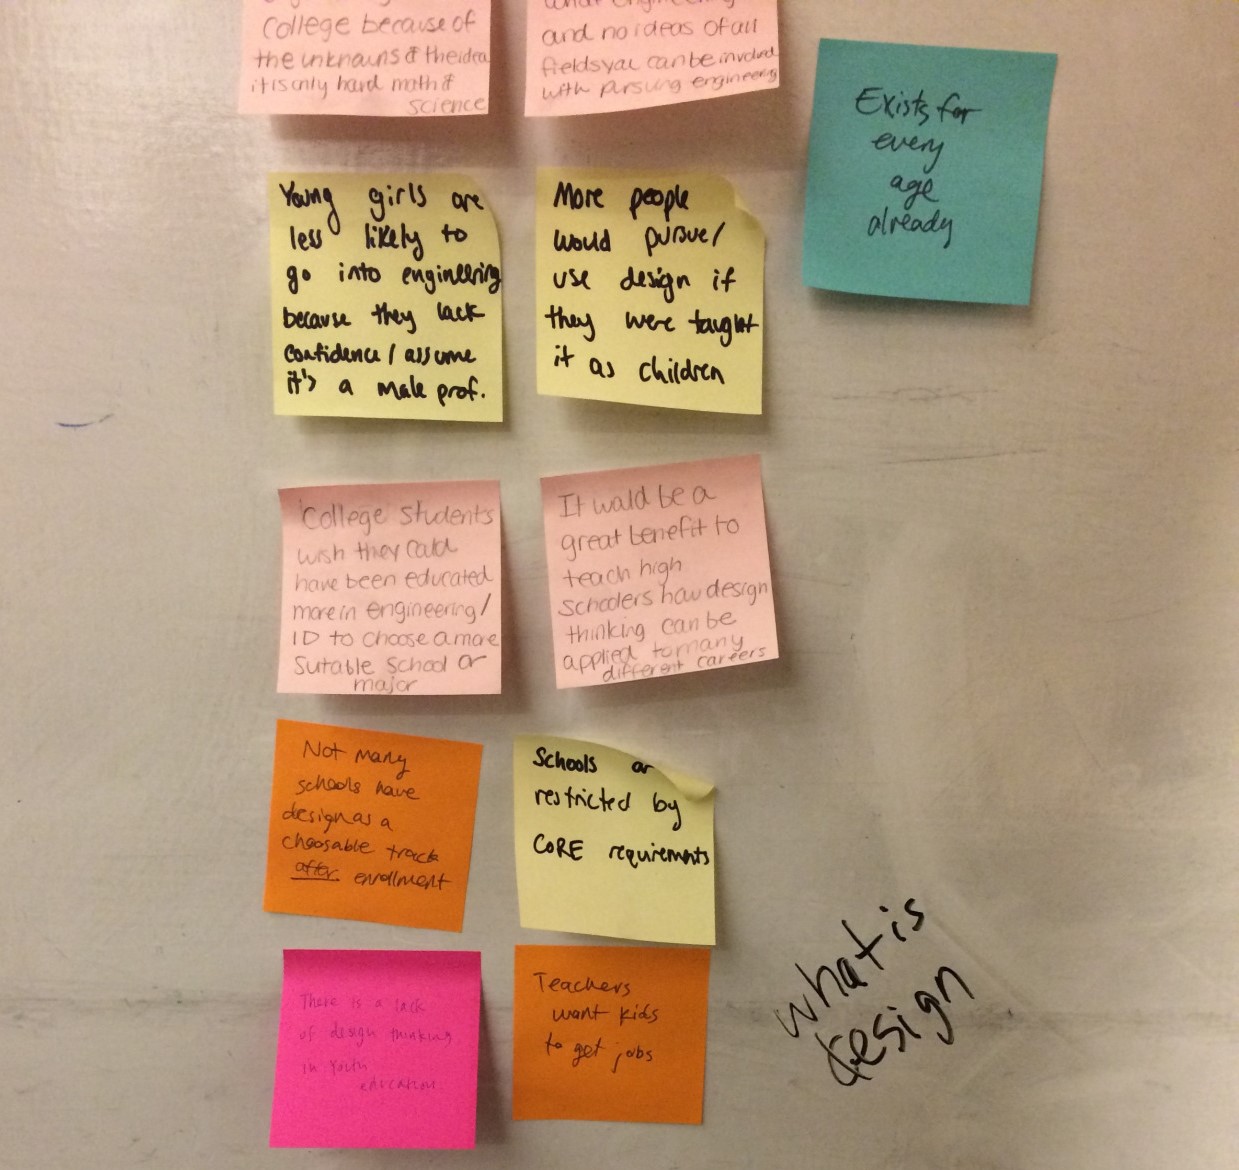 College because of
the unknowns & the idea
it is only hard math &
science
and no ideas of all
fields you can be involved
with pursuing engineering
Exists for
every
age
already
Young girls are
less likely to
go into engineering
because they lack
confidence / assume
it's a male prof.
More people
would pursue/
use design if
they were taught
it as children
College students
wish they could
have been educated
more in engineering/
ID to choose a more
suitable school or
major
It would be a
great benefit to
teach high
schoolers how design
thinking can be
applied to many
different careers
Not many
schools have
design as a
choosable track
after enrollment
Schools
restricted by
CORE requirements
There is a lack
of design thinking
in youth
education
Teachers
want kids
to get jobs
what is
design